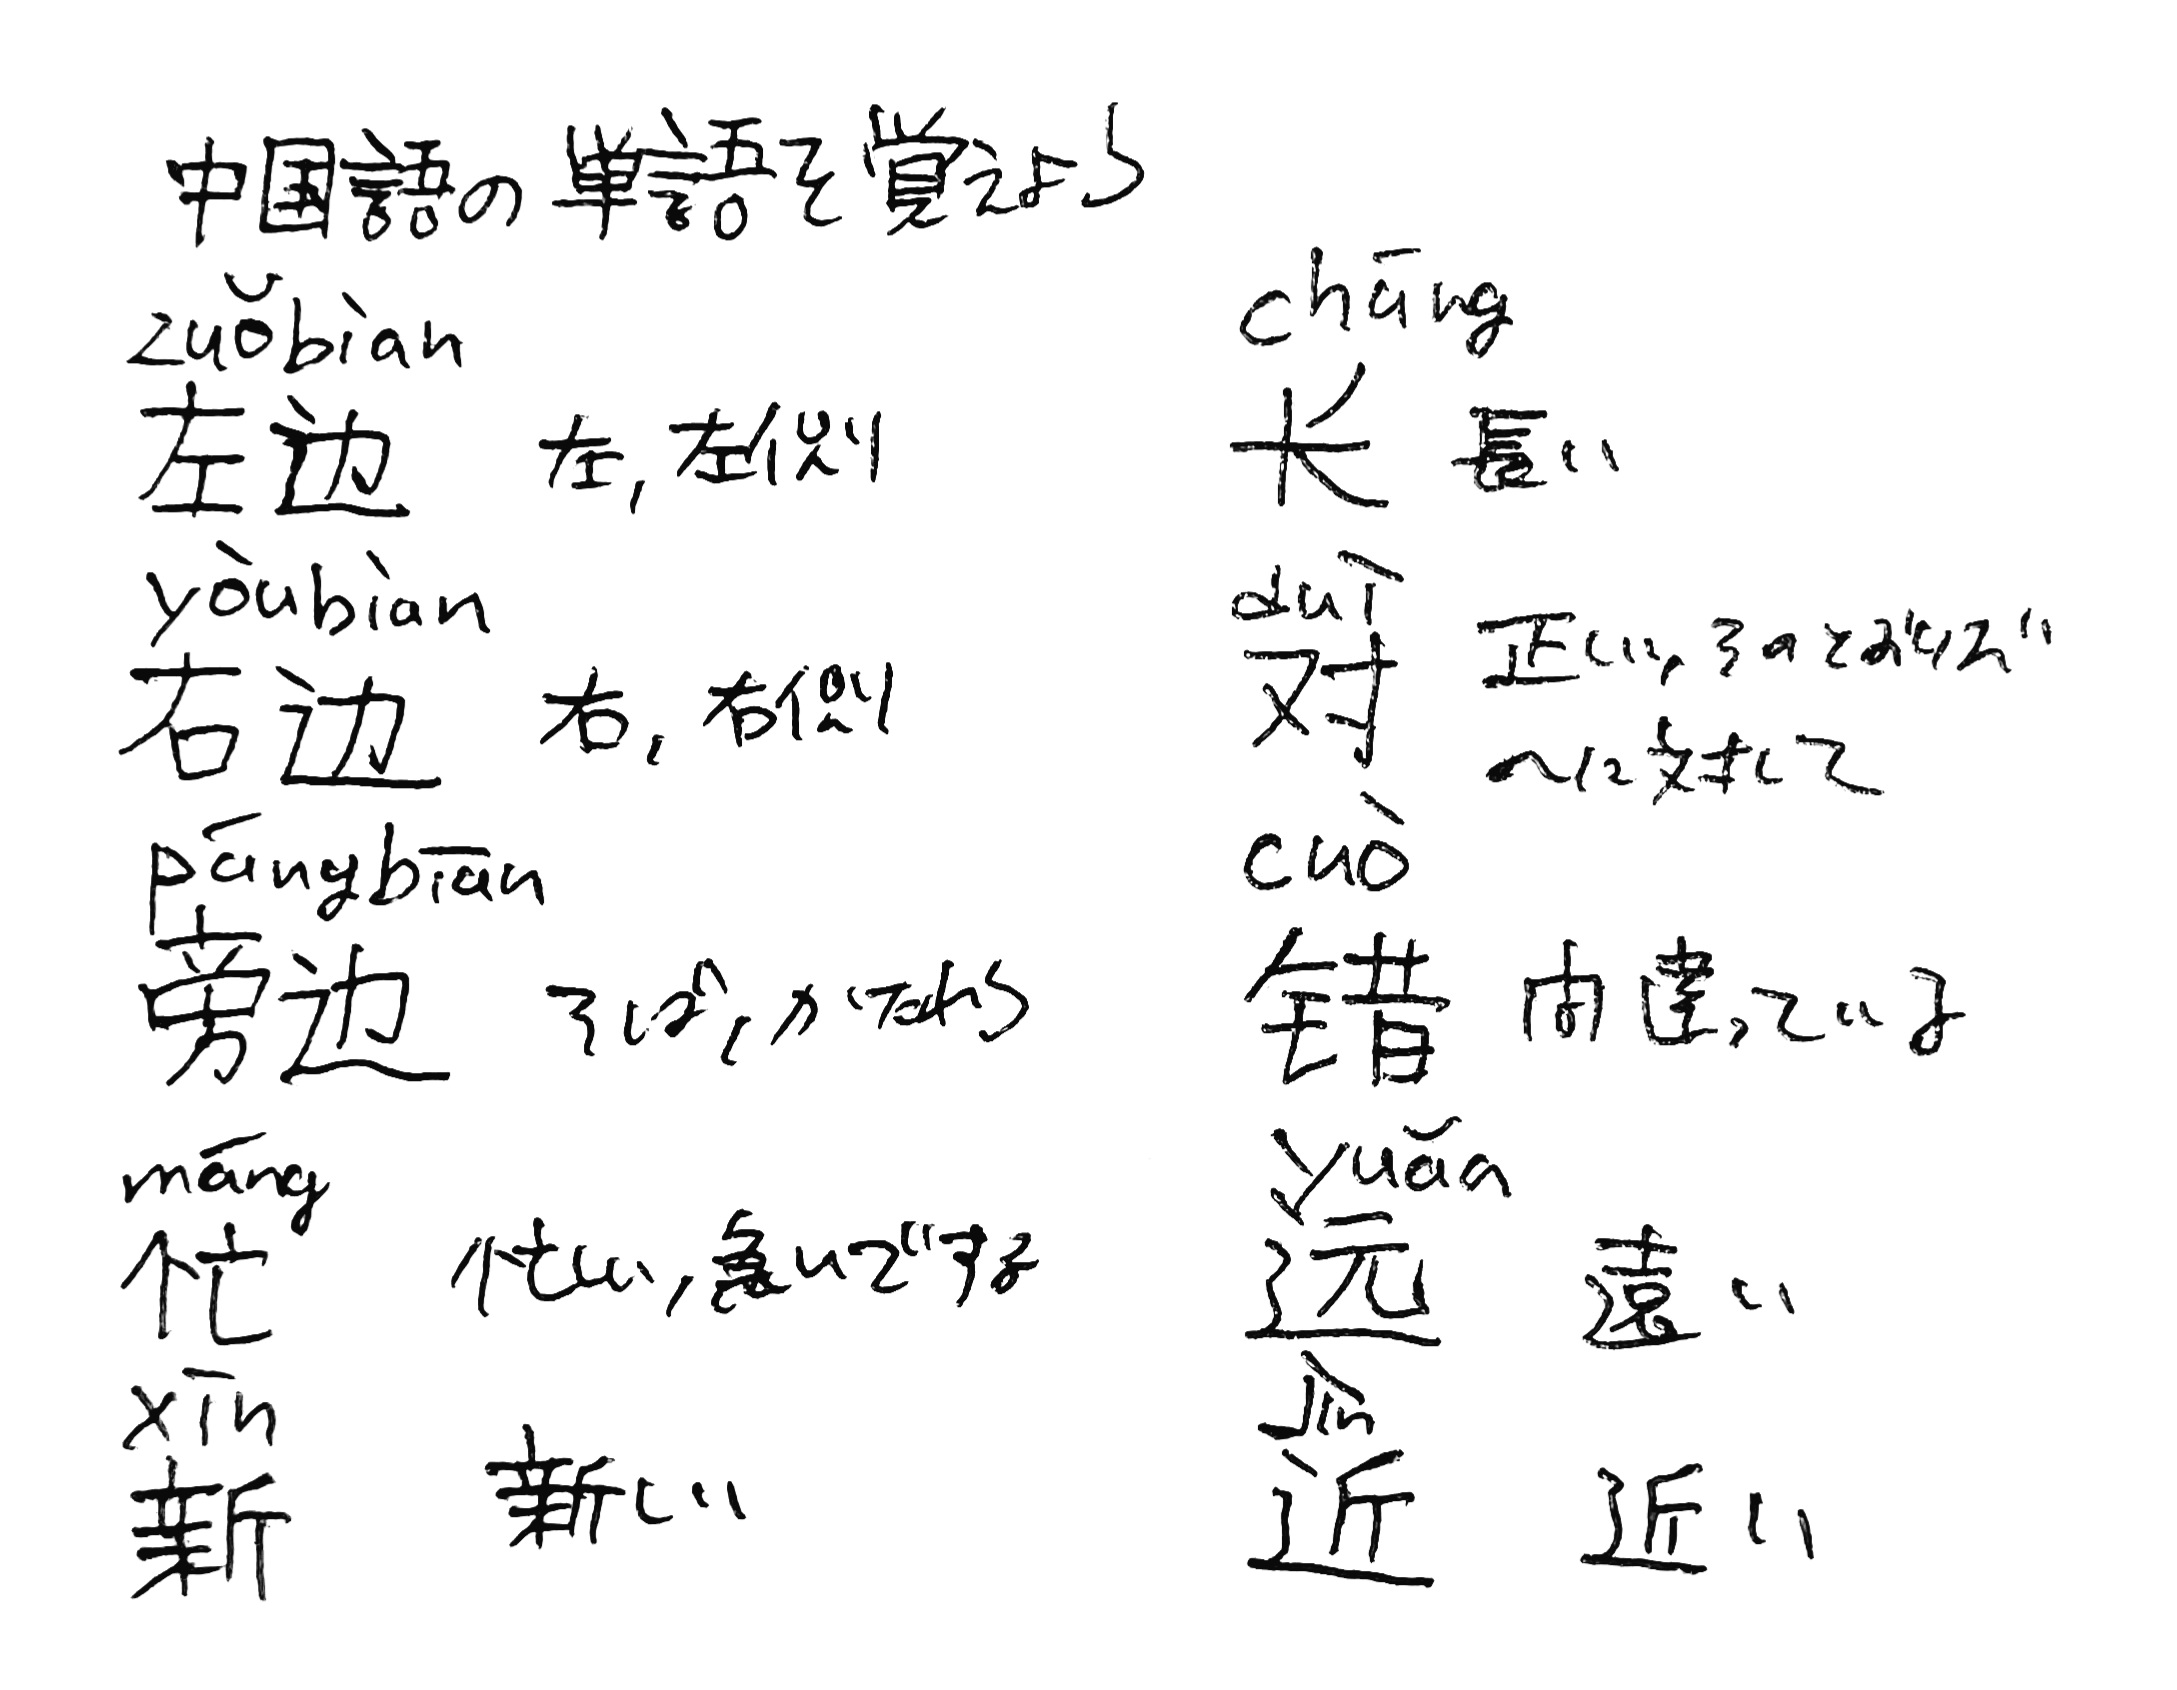 中国語の単語を覚えよう
zuǒbìan
左边 左, 左側
yòubìan
右边 右, 右側
pángbīan
旁边 そば,
máng
忙 忙しい, 急いでする
xīn
新 新しい
chāng
长 長い
duì
对 正しい, そのとおりだ
~に対して
cuò
错 間違っている
yuǎn
远 遠い
jìn
近 近い